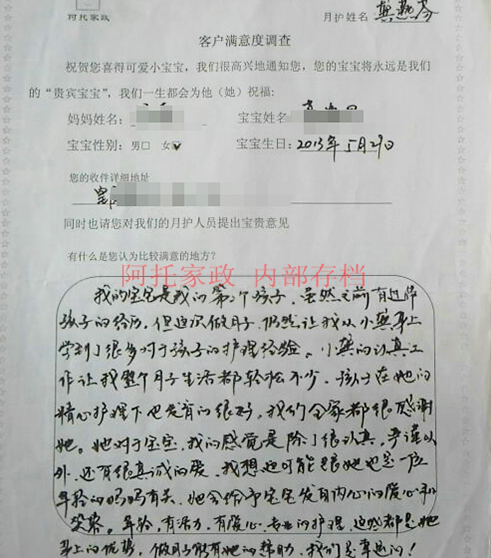 阿托家政
月护姓名
客户满意度调查
祝贺您喜得可爱小宝宝，我们很高兴地通知您，您的宝宝将永远是我们
的“贵宾宝宝”，我们一生都会为他（她）祝福:
妈妈姓名: 宝宝姓名
宝宝性别: 男□ 女 宝宝生日: 2013年5月29日
您的收件详细地址
同时也请您对我们的月护人员提出宝贵意见
有什么是您认为比较满意的地方?
阿托家政 内部存档
我的宝宝是我的第2个孩子，虽然之前有过
孩子的经历，但这次做月子，仍然让我从小樊身上
学到了很多对于孩子的护理经验。小樊的认真工
作让我整个月子生活都轻松不少，孩子在她的
精心护理下也发育的很好，我们全家都很感谢
她。她对于宝宝，我的感觉是除了很认真，严谨以
外，还有很真诚的爱，我想这可能跟她也是一位
年轻的妈妈有关，她会给予宝宝发自内心的爱心和
笑容。年轻，有活力，有爱心，专业的护理，这些都是她
身上的优势，做月子能有她的帮助，我们